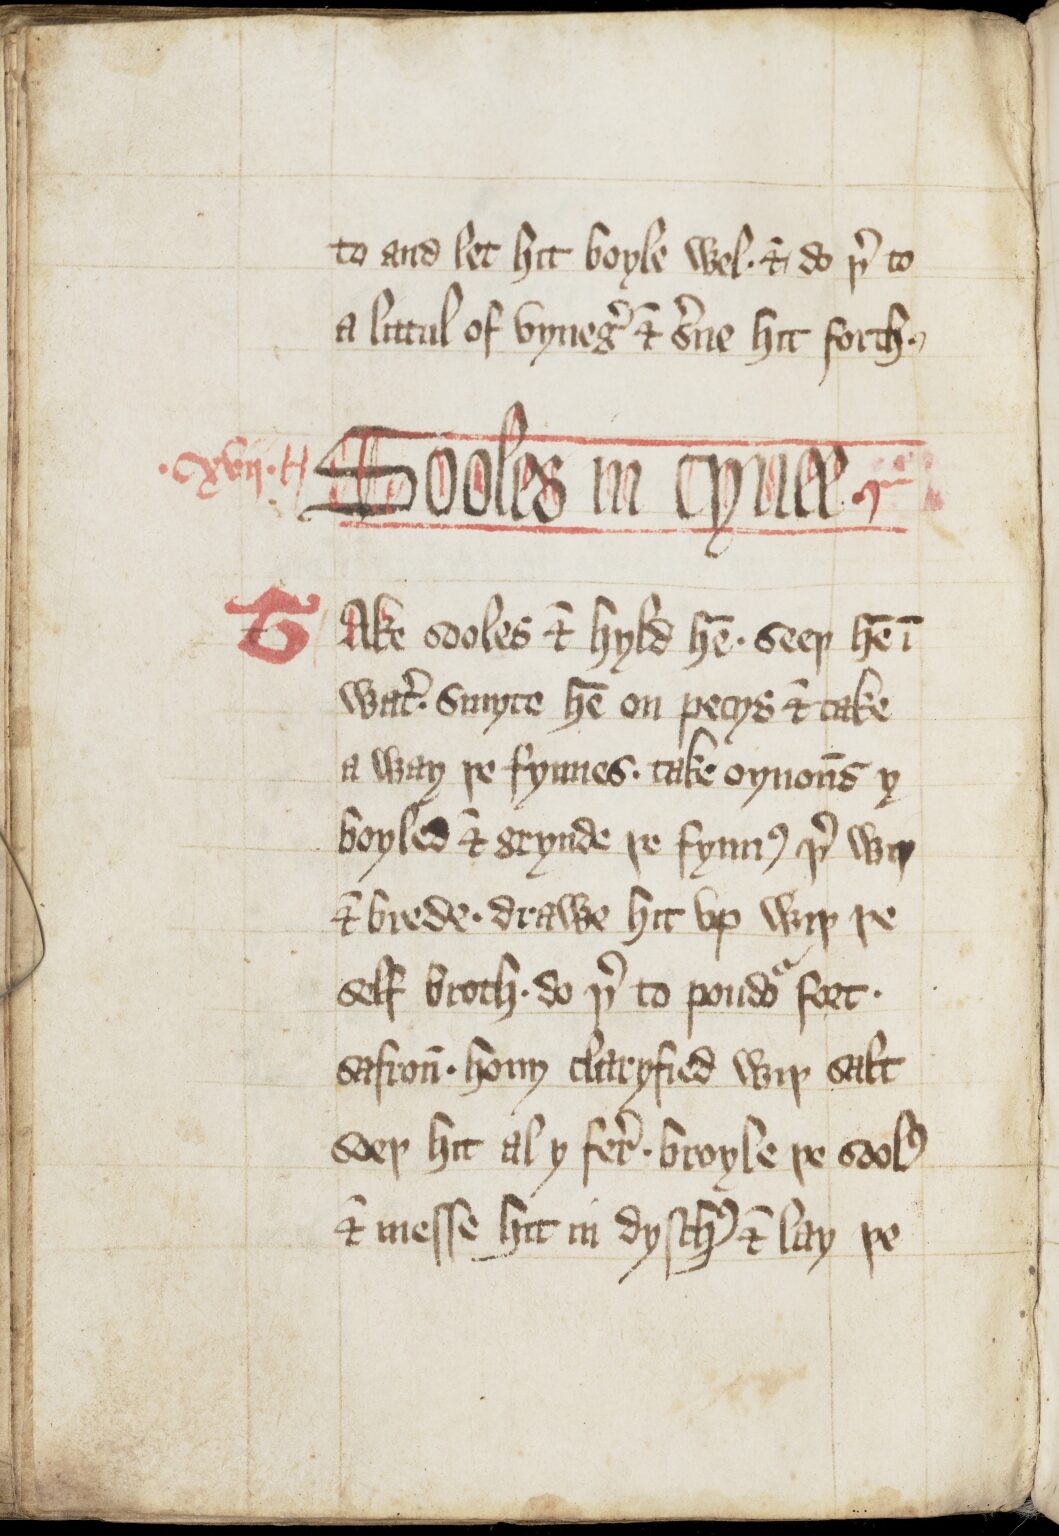 to and let hit boyle wel. & do þ̉ to
a lutul of vyneg̉ & s̉ue hit forth.
.xvij.
Sooles in cynee.
TAke sooles & hyld hē. seeþ hē ī
wat̉. smyte hē on pecys & take
a way þe fynnes. take oynon̄s y
boyled & grynde þe fynn þ̉ wiþ
& brede. drawe hit vp wiþ þe
self broth. do þ̉ to poudoʳ fort.
safron̄. hony claryfied wiþ salt
seeþ hit al y fer̉. broyle þe sool
& messe hit in dysch & lay þe